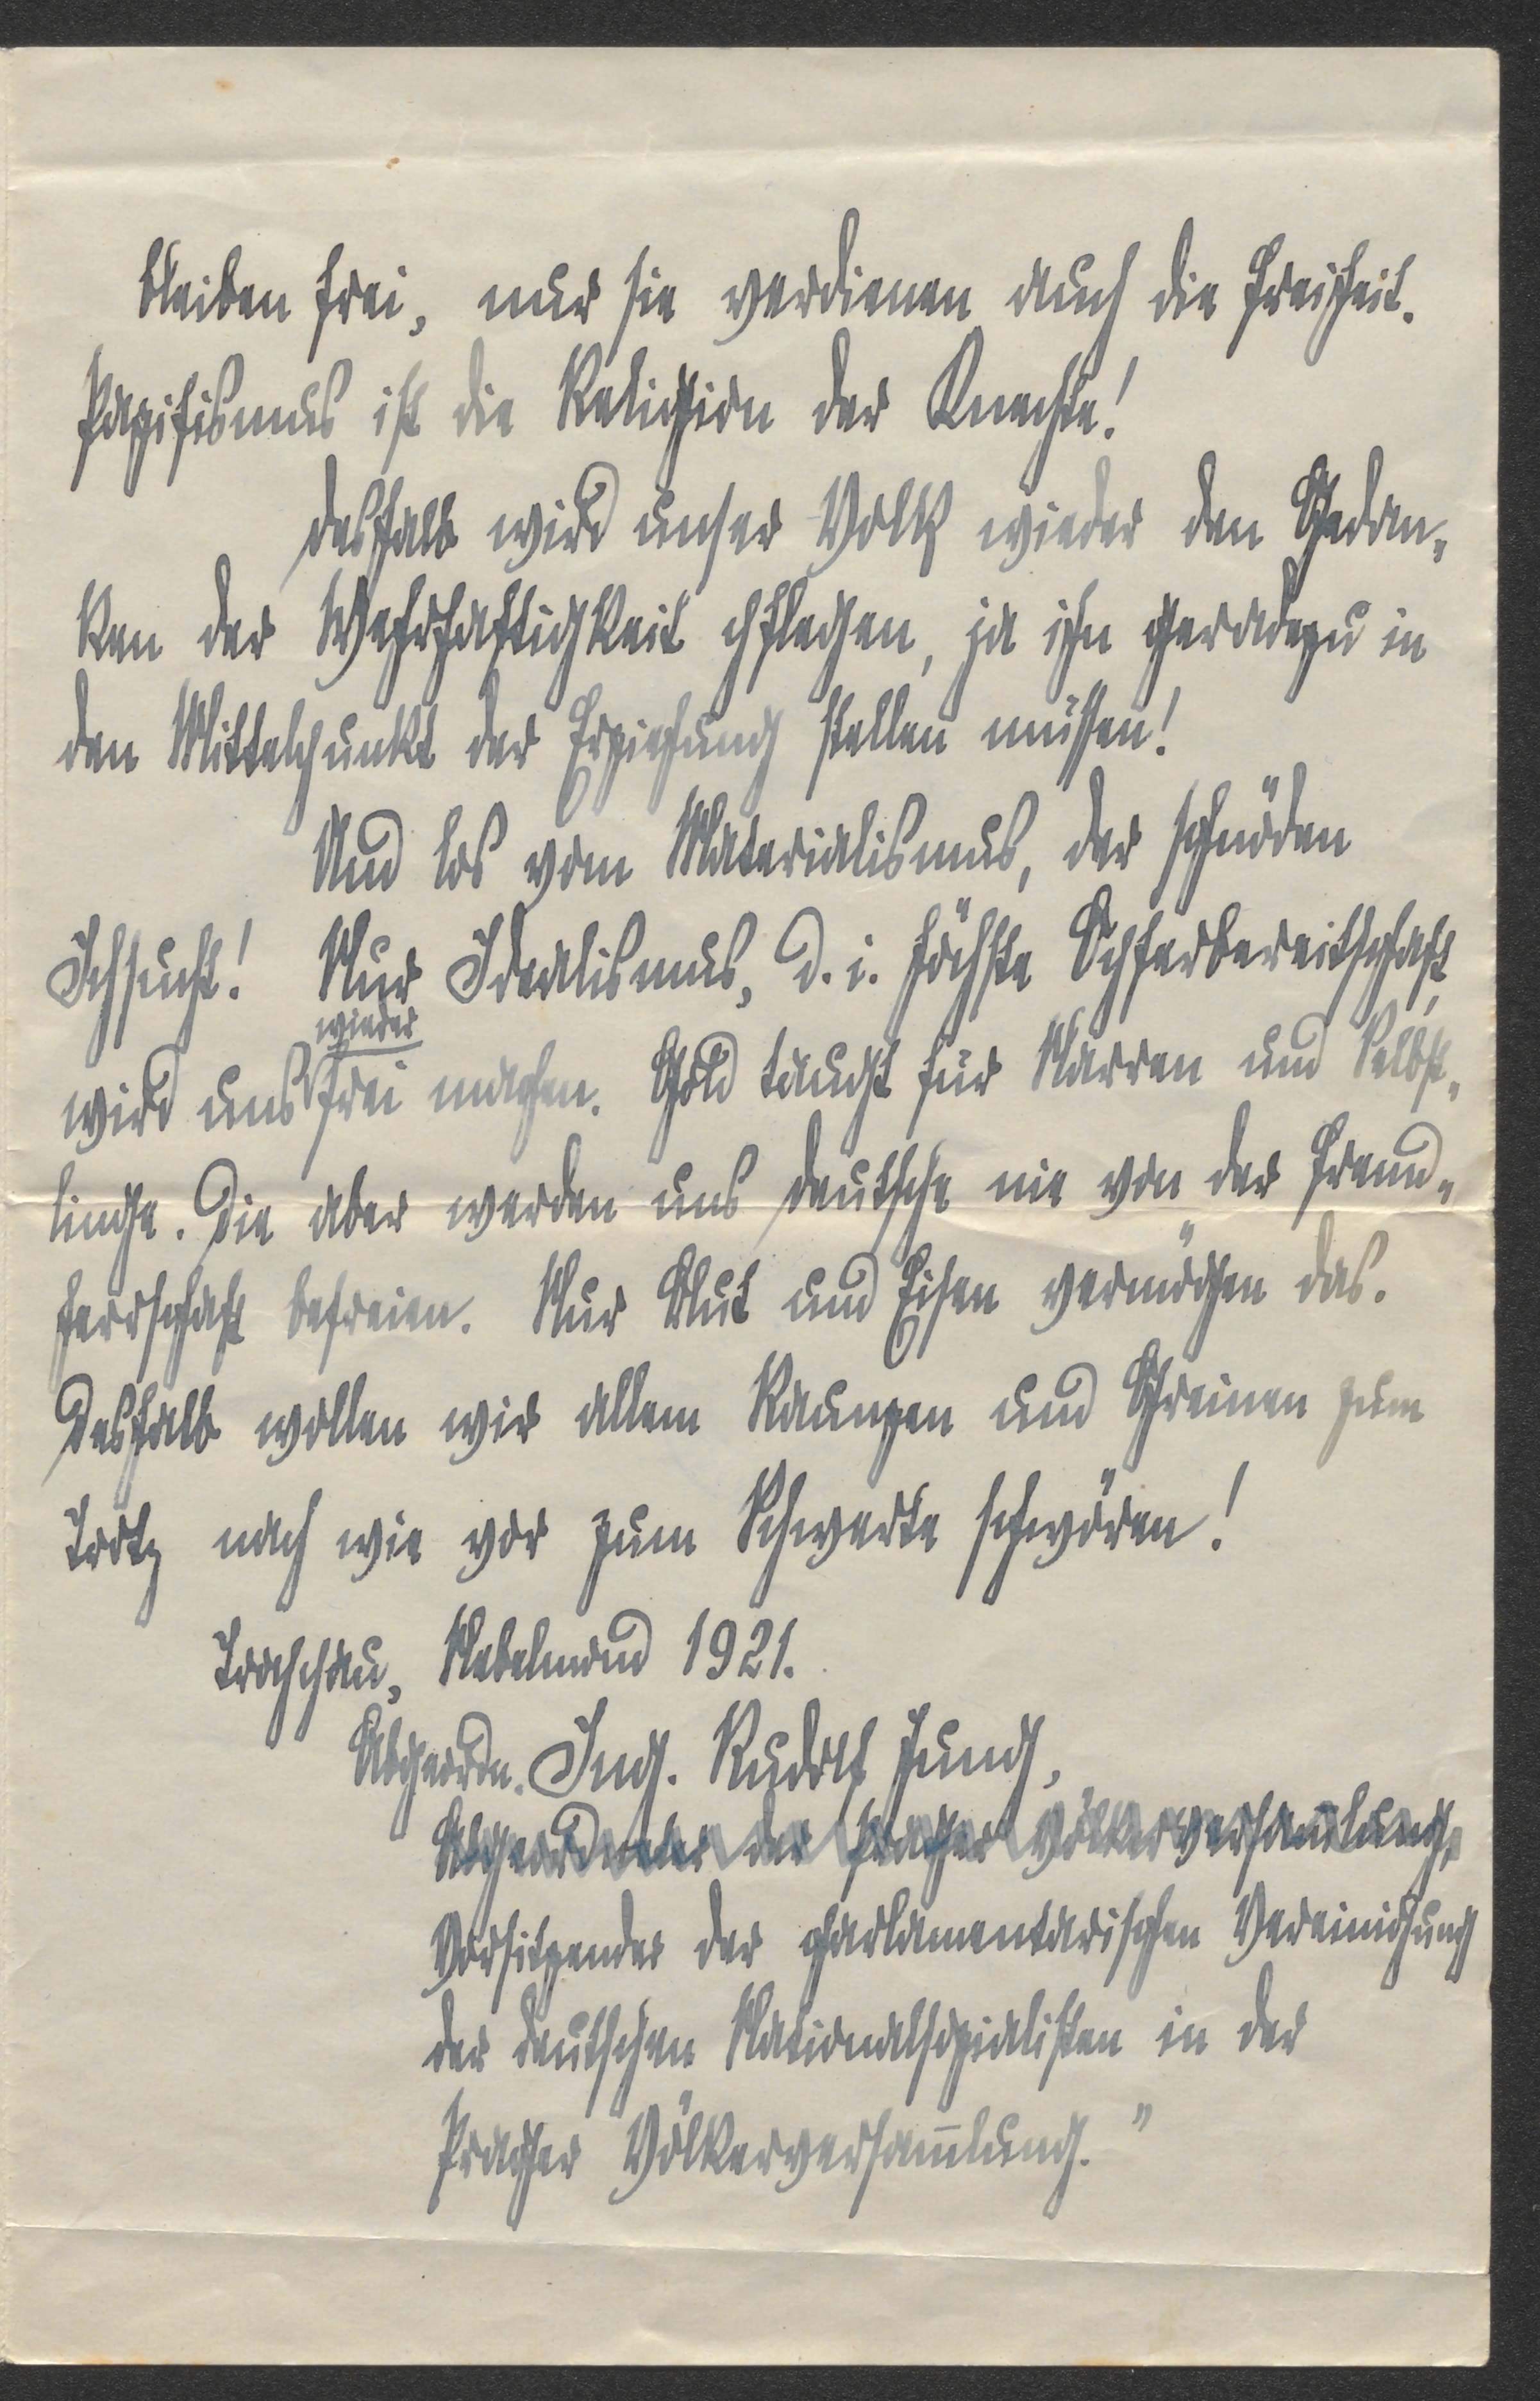 bleiben frei, nur sie verdienen auch die Freiheit.
Pazifismus ist die Religion der Knechte!
Deshalb wird unser Volk wieder den Gedan-
ken der Wehrhaftigkeit pflegen, ja ihn geradezu in
den Mittelpunkt der Erziehung stellen müssen!
Und los vom Materialismus, der schnöden
Ichsucht! Nur Idealismus, d. i. höchste Opferbereitschaft,
wieder
wird uns frei machen. Gold taugt für Narren und Selbst-
linge. Die aber werden uns Deutsche nie von der Fremd-
herrschaft befreien. Nur Blut und Eisen vermögen das.
Deshalb wollen wir allem Raunzen und Greinen zum
Trotz nach wie vor zum Schwerte schwören!
Troppau, Nebelmond 1921.
Abgeordn. Ing. Rudolf Jung,
Abgeordneter der Prager Völkerversam̅lung,
Vorsitzender der parlamentarischen Vereinigung
der deutschen Nationalsozialisten in der
Prager Völkerversam̅lung."